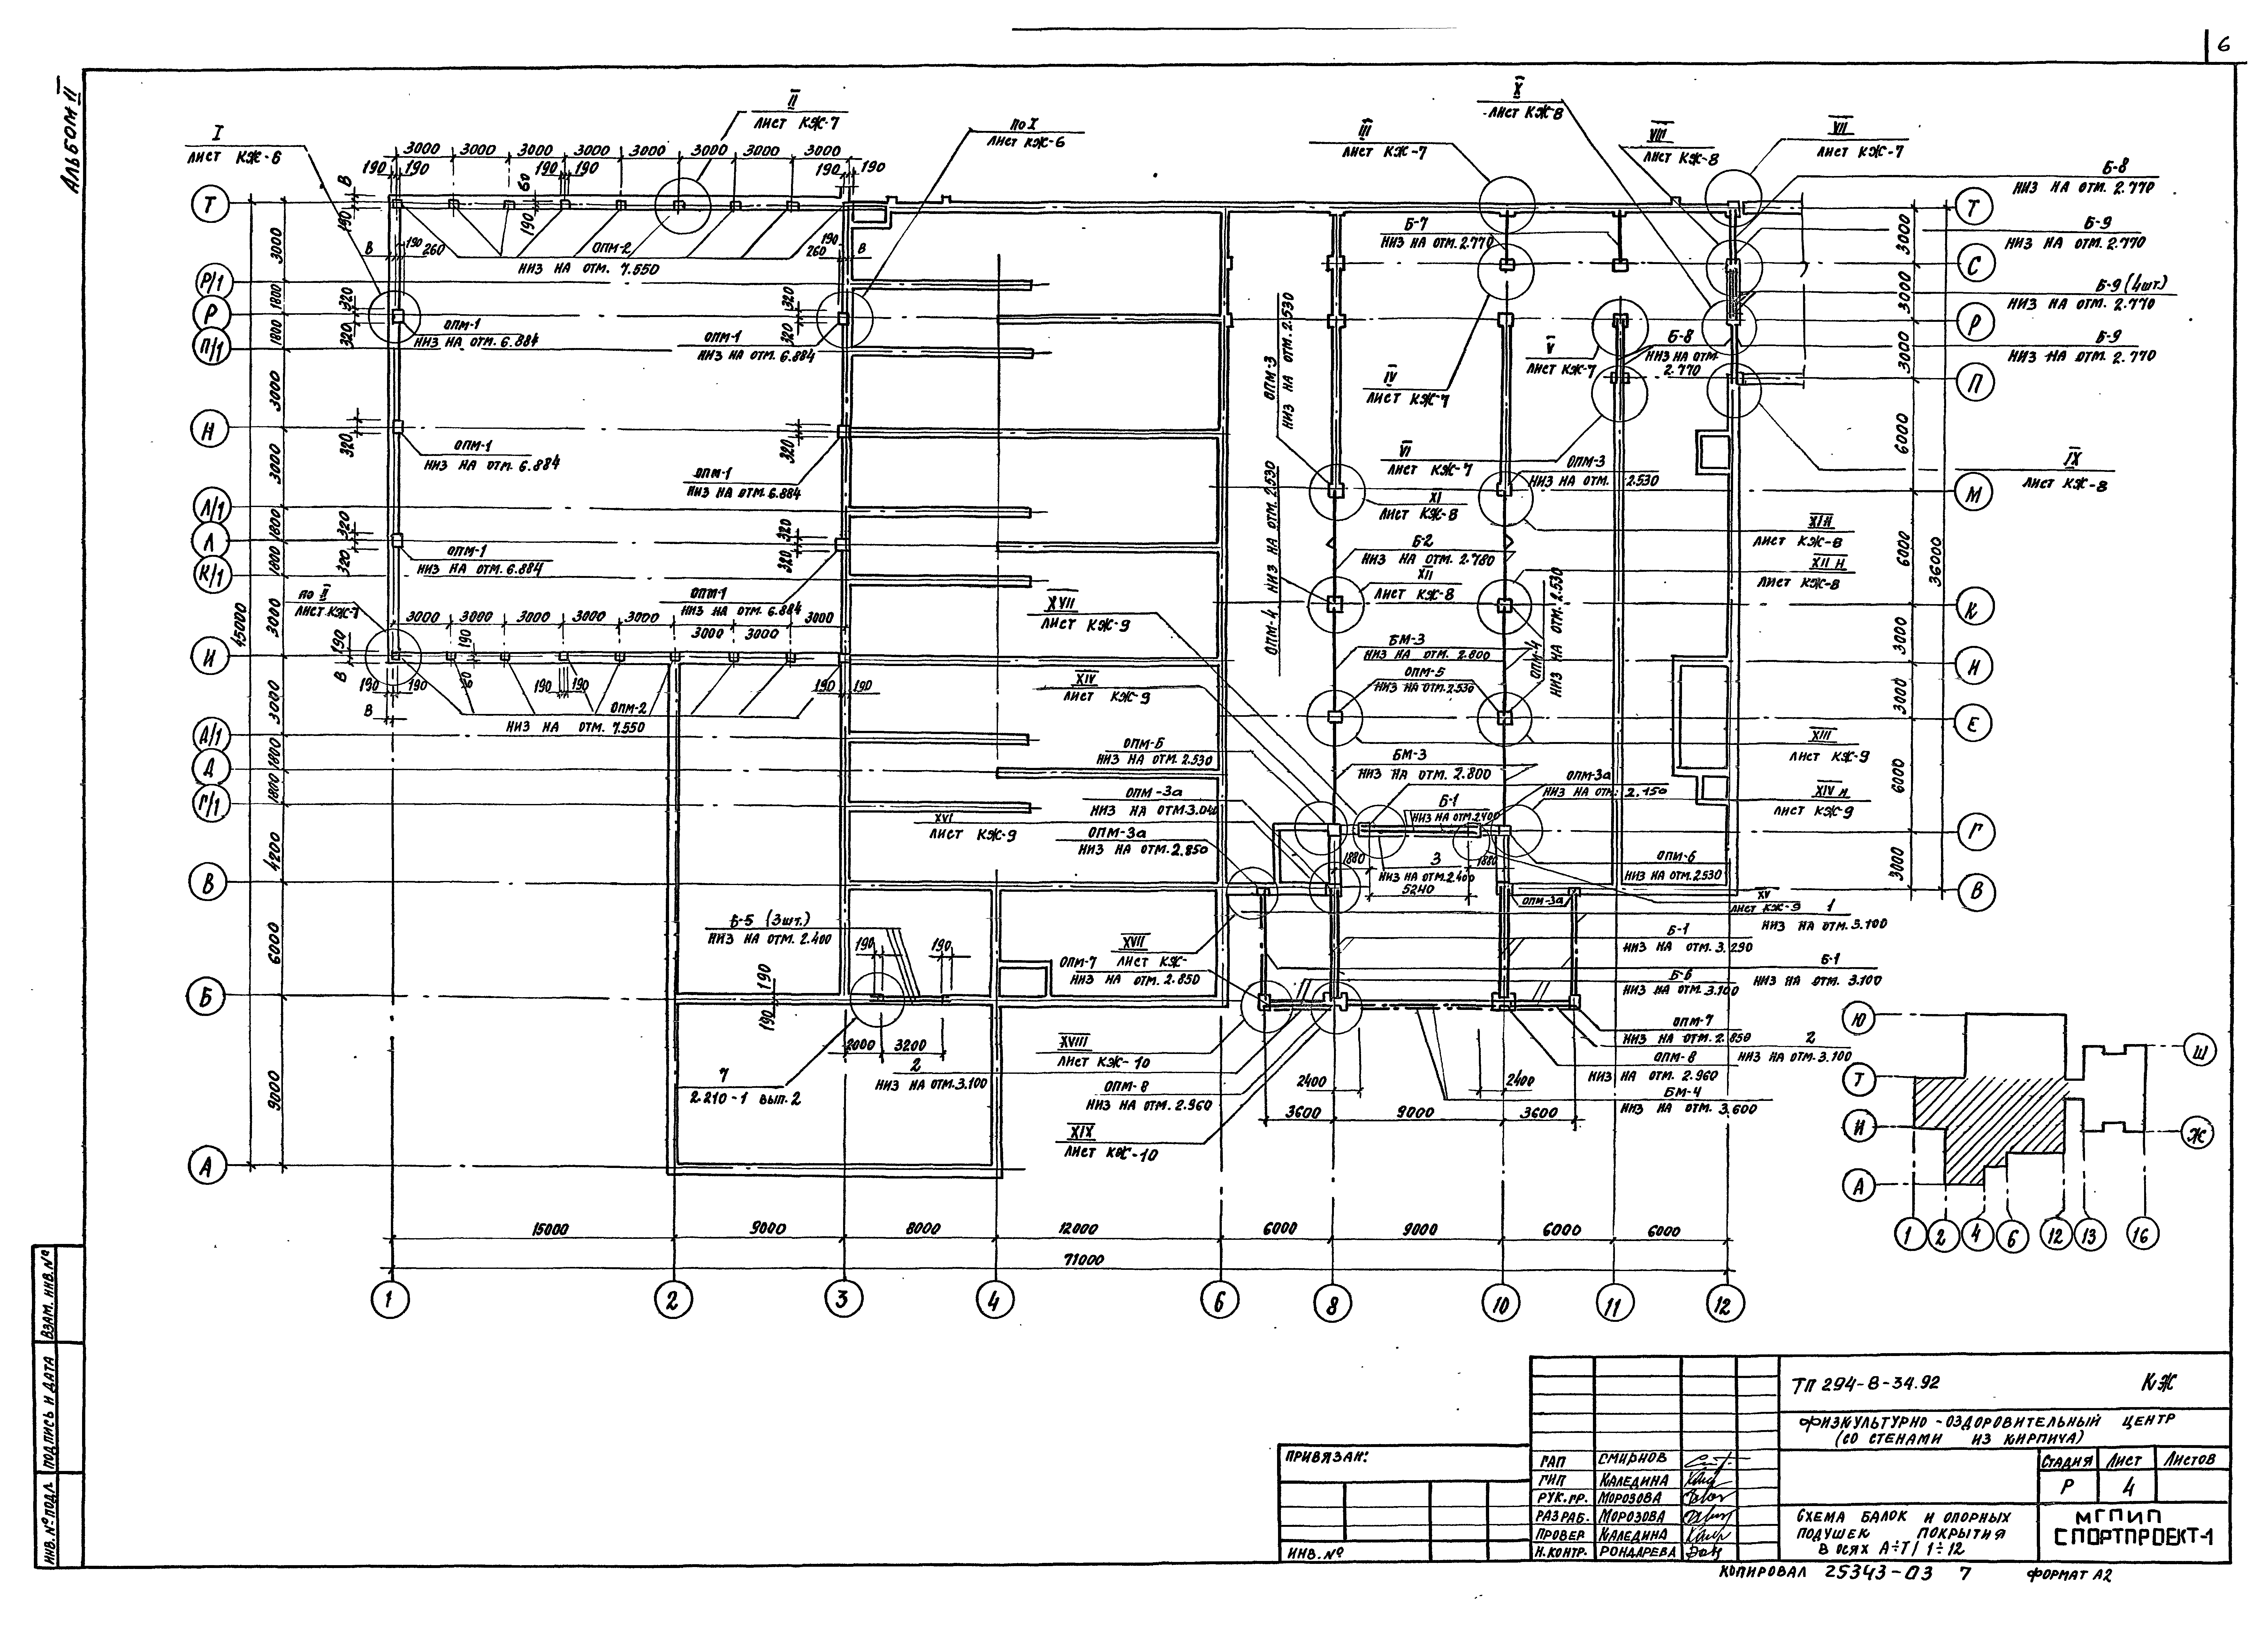 6
Альбом II
I
лист КЖ-6
II
лист КЖ-7
по I
лист КЖ-6
III
лист КЖ-7
X
лист КЖ-8
VIII
лист КЖ-8
VII
лист КЖ-7
Б-8
низ на отм. 2.770
Б-9
низ на отм. 2.770
Б-9 (4шт.)
низ на отм. 2.770
Б-9
низ на отм. 2.770
3000 3000 3000 3000 3000 3000 3000 3000
190 190 190 190 190 190
В 190 60 190
ОПМ-2
низ на отм. 7.550
В 190 260
190 260 В
Б-7
низ на отм. 2.770
Т
Р/1
Р
П/1
Н
Л/1
Л
К/1
И
Д/1
Д
Г/1
В
Б
А
3000
1800
1800
3000
3000
1800
1800
3000
3000
1800
1800
4200
6000
9000
45000
320
320
ОПМ-1
низ на отм. 6.884
ОПМ-1
низ на отм. 6.884
320
320
ОПМ-1
низ на отм. 6.884
320
320
ОПМ-1
низ на отм. 6.884
320
320
ОПМ-1
низ на отм. 6.884
320
320
ОПМ-1
низ на отм. 6.884
по II
лист КЖ-7
3000 3000 3000 3000 3000 3000 3000 3000
В 190 190 60 190 190 190 190 190 190
В
ОПМ-2
низ на отм. 7.550
ОПМ-3
низ на отм. 2.530
IV
лист КЖ-7
V
лист КЖ-7
Б-8
низ на отм.
2.770
VI
лист КЖ-7
ОПМ-3
низ на отм. 2.530
IX
лист КЖ-8
XI
лист КЖ-8
XI Н
лист КЖ-8
Б-2
низ на отм. 2.780
XII
лист КЖ-8
XII Н
лист КЖ-8
ОПМ-4 низ на отм. 2.530
ОПМ-4
низ на отм. 2.530
XVII
лист КЖ-9
БМ-3
низ на отм. 2.800
XIV
лист КЖ-9
ОПМ-5
низ на отм. 2.530
XIII
лист КЖ-9
ОПМ-Б
низ на отм. 2.530
БМ-3
низ на отм. 2.800
ОПМ-3а
низ на отм. 2.150
XIV Н
лист КЖ-9
ОПМ-3а
низ на отм. 3.040
XVI
лист КЖ-9
Б-1
низ на отм. 2.400
ОПМ-3а
низ на отм. 2.850
1880
3
1880
низ на отм. 2.400
5240
ОПМ-6
низ на отм. 2.530
ОПМ-3а
XV
лист КЖ-9
1
низ на отм. 3.100
Б-5 (3шт.)
низ на отм. 2.400
190 190
190
190
XVII
лист КЖ-
ОПМ-7
низ на отм. 2.850
Б-1
низ на отм. 3.290
Б-1
низ на отм. 3.100
Б-6
низ на отм. 3.100
2000 3200
7
2.210-1 вып. 2
2
низ на отм. 3.100
XVIII
лист КЖ-10
ОПМ-8
низ на отм. 2.960
XIX
лист КЖ-10
ОПМ-7
низ на отм. 2.850
2
низ на отм. 3.100
ОПМ-8
низ на отм. 2.960
БМ-4
низ на отм. 3.600
2400 2400
3600 9000 3600
Т
С
Р
П
М
К
И
Е
Г
В
3000
3000
3000
6000
6000
3000
3000
6000
3000
36000
15000 9000 8000 12000 6000 9000 6000 6000
71000
1 2 3 4 6 8 10 11 12
Ю
Т
И
А
Ш
Ж
1 2 4 6 12 13 16
Взам. инв. №
Подпись и дата
Инв. № подл.
Привязан:
Инв. №
ГАП Смирнов
ГИП Каледина
Рук. гр. Морозова
Разраб. Морозова
Провер Каледина
Н. контр. Рондарева
ТП 294-8-34.92 КЖ
Физкультурно-оздоровительный центр
(со стенами из кирпича)
Стадия Лист Листов
Р 4
Схема балок и опорных
подушек покрытия
в осях А÷Т/1÷12
МГПИП
Спортпроект-1
Копировал 25343-03 7 Формат А2